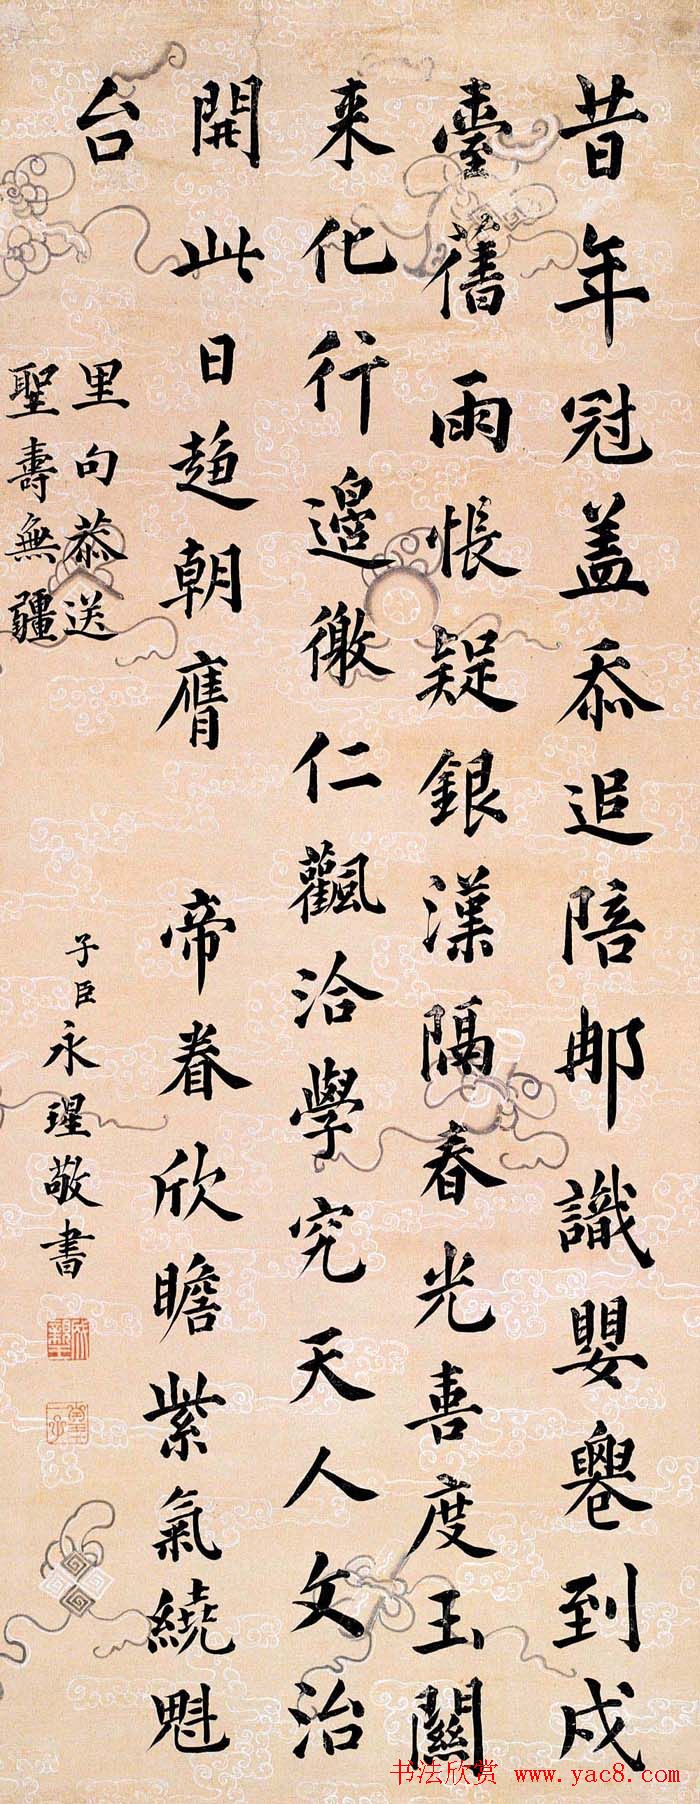 昔年冠盖忝追陪那識嬰到戍
臺舊雨悵疑銀漢隔春光喜度玉關
来化行邊徼仁飌洽學究天人文治
開此日趋朝膺
帝眷欣瞻紫氣繞魁
台
里句恭送
聖壽無疆
子臣永瑆敬書
书法欣赏 www.yac8.com